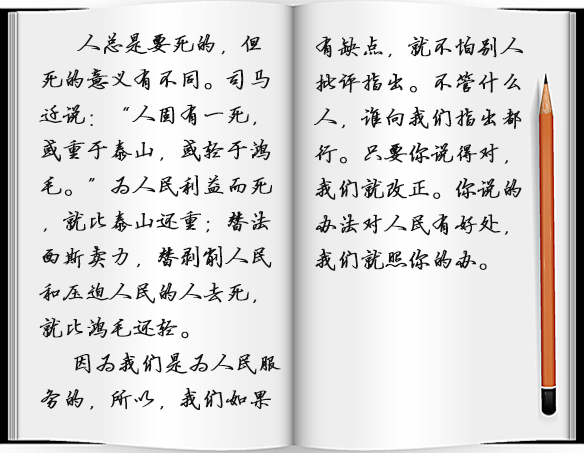 人总是要死的，但
死的意义有不同。司马
迁说：“人固有一死，
或重于泰山，或轻于鸿
毛。”为人民利益而死
，就比泰山还重；替法
西斯卖力，替剥削人民
和压迫人民的人去死，
就比鸿毛还轻。
因为我们是为人民服
务的，所以，我们如果
有缺点，就不怕别人
批评指出。不管什么
人，谁向我们指出都
行。只要你说得对，
我们就改正。你说的
办法对人民有好处，
我们就照你的办。